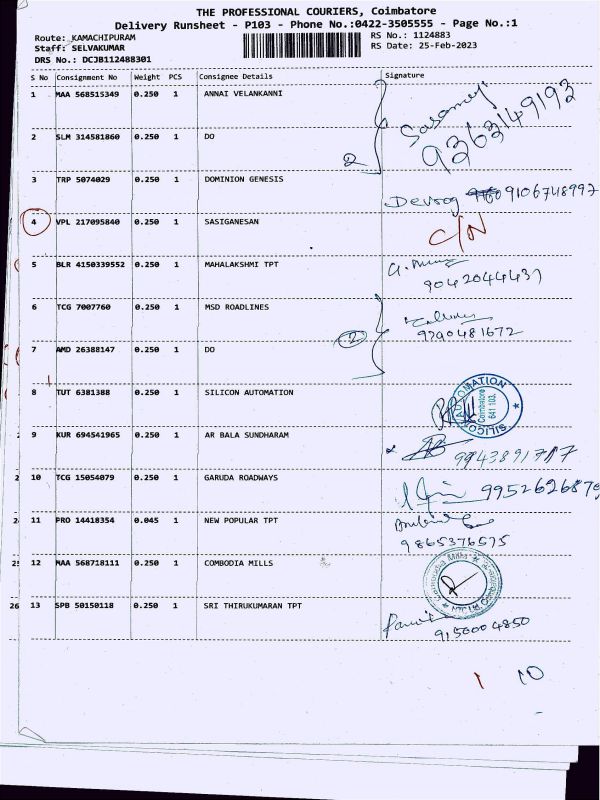 THE PROFESSIONAL COURIERS, Coimbatore
Delivery Runsheet - P103 - Phone No.:0422-3505555 - Page No.:1
Route: KAMACHIPURAM
RS No.: 1124883
Staff: SELVAKUMAR
RS Date: 25-Feb-2023
DRS No.: DCJB112488301
S No Consignment No Weight PCS Consignee Details Signature
1 MAA 568515349 0.250 1 ANNAI VELANKANNI
9363149193
2 SLM 314581860 0.250 1 DO
2
3 TRP 5074029 0.250 1 DOMINION GENESIS
Devrog 9106748997
4 VPL 217095840 0.250 1 SASIGANESAN
C/N
5 BLR 4150339552 0.250 1 MAHALAKSHMI TPT
9042044437
6 TCG 7007760 0.250 1 MSD ROADLINES
9790481672
7 AMD 26388147 0.250 1 DO
2
8 TUT 6381388 0.250 1 SILICON AUTOMATION
SILICON AUTOMATION
Coimbatore
641 103.
9 KUR 694541965 0.250 1 AR BALA SUNDHARAM
9943891717
2 10 TCG 15054079 0.250 1 GARUDA ROADWAYS
9952626879
2 11 PRO 14418354 0.045 1 NEW POPULAR TPT
9865376575
25 12 MAA 568718111 0.250 1 COMBODIA MILLS
26 13 SPB 50150118 0.250 1 SRI THIRUKUMARAN TPT
9150004850
1 10